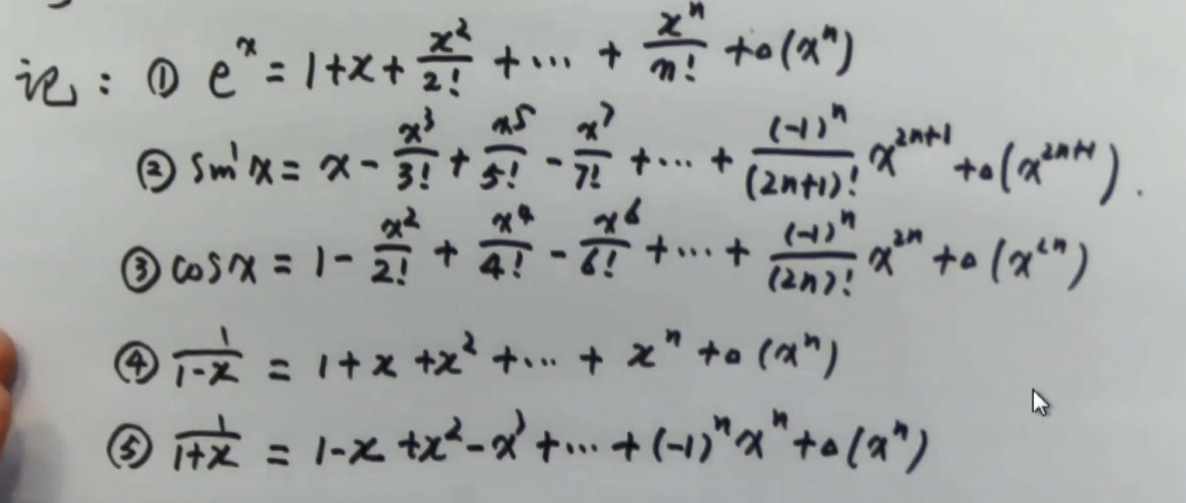 记: ① e^x = 1+x+\frac{x^2}{2!}+\cdots+\frac{x^n}{n!}+o(x^n)
② sin x = x-\frac{x^3}{3!}+\frac{x^5}{5!}-\frac{x^7}{7!}+\cdots+\frac{(-1)^n}{(2n+1)!}x^{2n+1}+o(x^{2n+1}).
③ cos x = 1-\frac{x^2}{2!}+\frac{x^4}{4!}-\frac{x^6}{6!}+\cdots+\frac{(-1)^n}{(2n)!}x^{2n}+o(x^{2n})
④ \frac{1}{1-x} = 1+x+x^2+\cdots+x^n+o(x^n)
⑤ \frac{1}{1+x} = 1-x+x^2-x^3+\cdots+(-1)^n x^n+o(x^n)